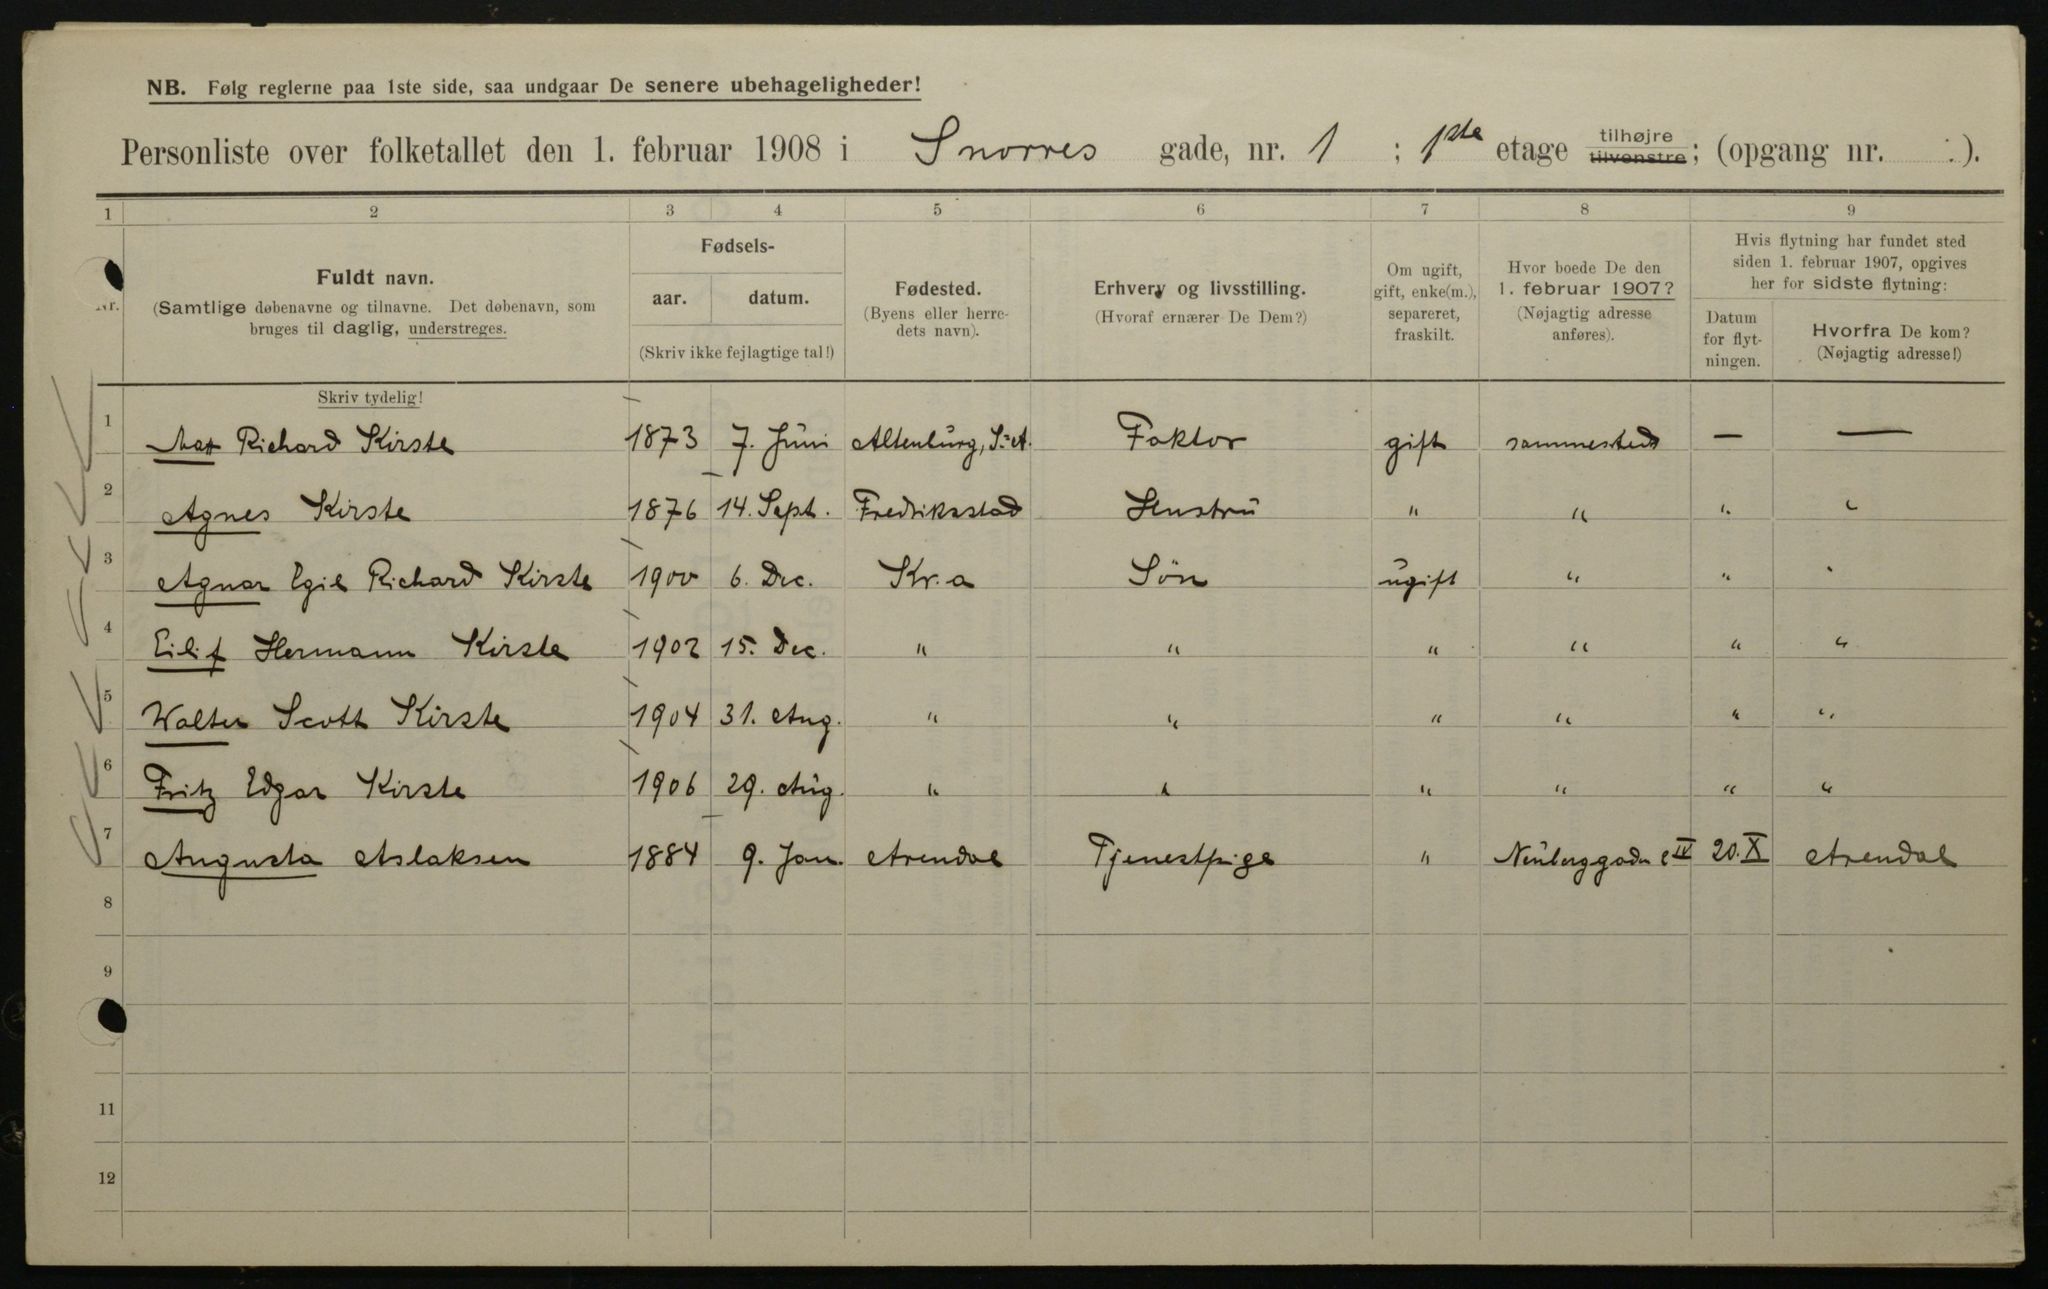 NB. Følg reglerne paa 1ste side, saa undgaar De senere ubehageligheder!
Personliste over folketallet den 1. februar 1908 i Snorres gade, nr. 1 ; 1ste etage tilhøjre tilvenstre; (opgang nr. ).
1 2 3 4 5 6 7 8 9
Nr.
Fuldt navn.
(Samtlige døbenavne og tilnavne. Det døbenavn, som
bruges til daglig, understreges.
Fødsels-
aar. datum.
(Skriv ikke fejlagtige tal!)
Fødested.
(Byens eller herre-
dets navn).
Erhverv og livsstilling.
(Hvoraf ernærer De Dem?)
Om ugift,
gift, enke(m.),
separeret,
fraskilt.
Hvor boede De den
1. februar 1907?
(Nøjagtig adresse
anføres).
Hvis flytning har fundet sted
siden 1. februar 1907, opgives
her for sidste flytning:
Datum
for flyt-
ningen.
Hvorfra De kom?
(Nøjagtig adresse!)
Skriv tydelig!
1 Max Richard Kirste 1873 7. Juni Altenburg, S.-A. Faktor gift sammesteds — —
2 Agnes Kirste 1876 14. Sept. Fredriksstad Hustru " " " "
3 Agnar Egil Richard Kirste 1900 6. Dec. Kr.a Søn ugift " " "
4 Eilif Hermann Kirste 1902 15. Dec. " " " " " "
5 Walter Scott Kirste 1904 31. Aug. " " " " " "
6 Fritz Edgar Kirste 1906 29. Aug. " " " " " "
7 Augusta Aslaksen 1884 9. Jan. Arendal Tjenestpige " Neuberggaden 2 IV 20. X Arendal
8
9
11
12